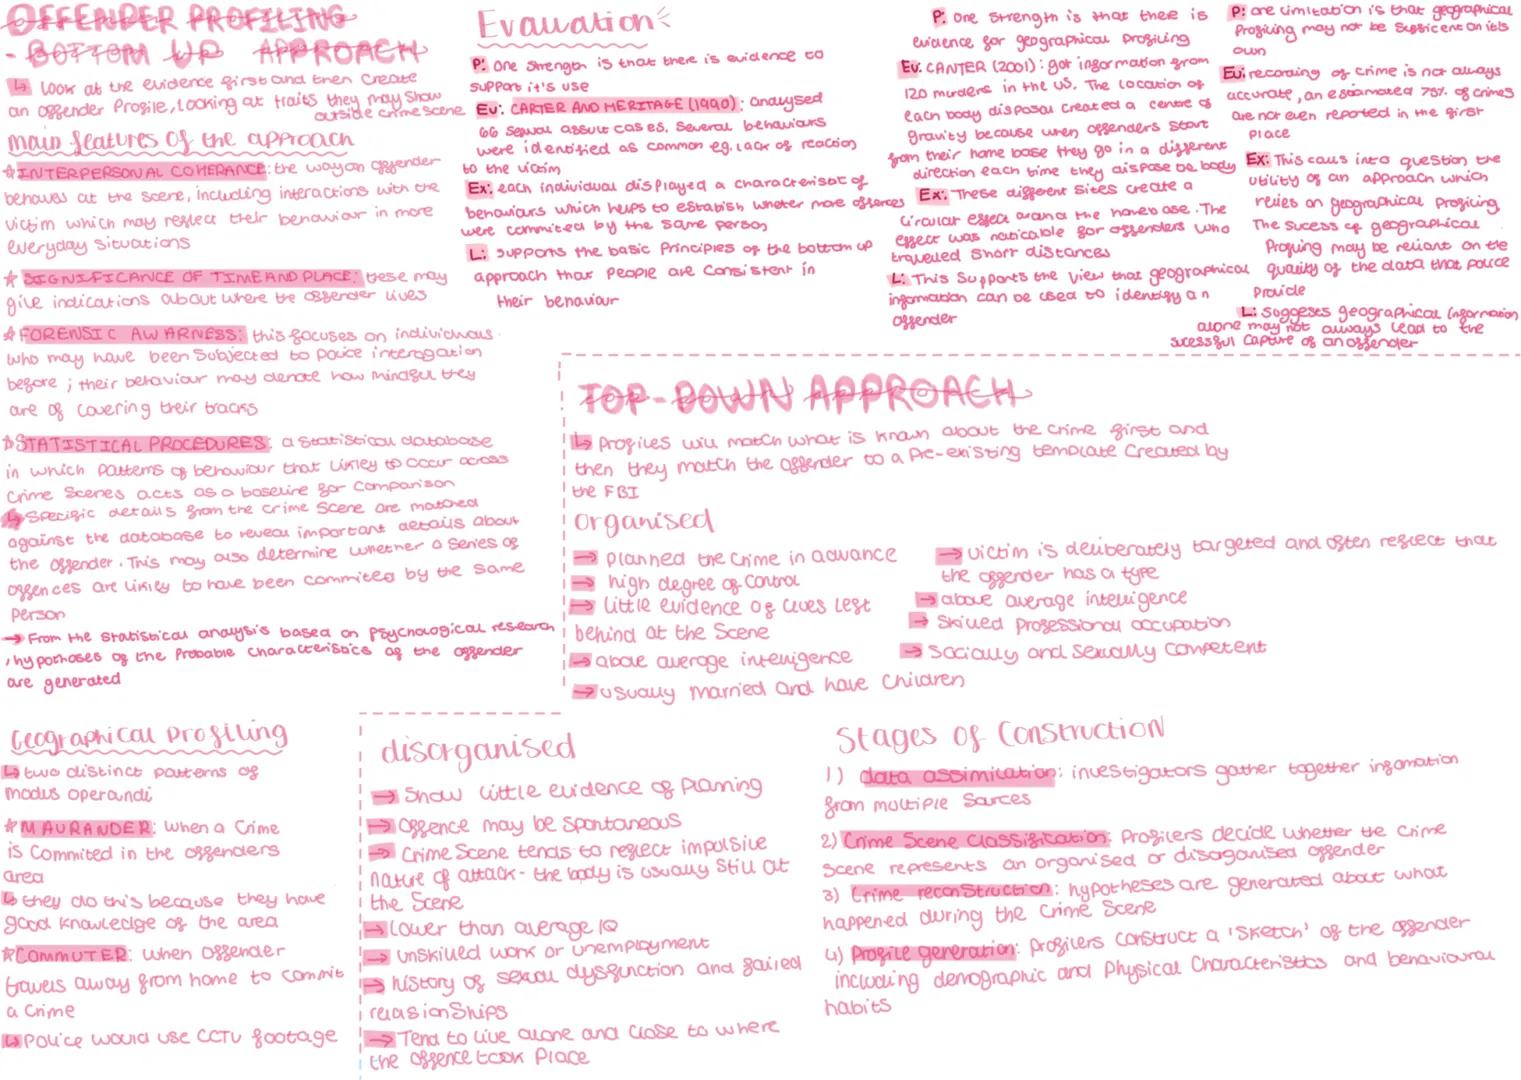 OFFENDER PROFILING
- BOTTOM UP APPROACH
↳ look at the evidence first and then create
an offender profile, looking at traits they may show
outside crime scene
main features of the approach
☆INTERPERSONAL COHERANCE: the way an offender
behaves at the scene, including interactions with the
victim which may reflect their behaviour in more
everyday situations
☆ SIGNIFICANCE OF TIME AND PLACE: these may
give indications about where the offender lives
☆FORENSIC AWARNESS: this focuses on individuals
who may have been subjected to police interogation
before ; their behaviour may denote how mindful they
are of covering their tracks
☆STATISTICAL PROCEDURES: a statistical database
in which patterns of behaviour that likley to occur across
crime scenes acts as a baseline for comparison
↳ Specific details from the crime scene are matched
against the database to reveal important details about
the offender. This may also determine whether a series of
offences are likley to have been commited by the same
person
→ From the statistical analysis based on psychological research
, hypotheses of the probable characteristics of the offender
are generated
Geographical profiling
↳ two distinct patterns of
modus operandi
☆MAURANDER: when a crime
is commited in the offenders
area
↳ they do this because they have
good knowledge of the area
☆COMMUTER: when offender
travels away from home to commit
a crime
↳ police would use CCTV footage
Evaluation
P: One strength is that there is evidence to
support it's use
Ev: CARTER AND HERITAGE (1990): analysed
66 sexual assult cases. Several behaviours
were identified as common eg. lack of reaction
to the victim
Ex: each individual displayed a characterisitc of
behaviours which helps to establish wheter more offences
were commited by the same person
L: supports the basic principles of the bottom up
approach that people are consistent in
their behaviour
P: One strength is that thee is
evidence for geographical profiling
Ev: CANTER (2001): got information from
120 murders in the US. The location of
each body disposal created a centre of
gravity because when offenders start
from their home base they go in a different
direction each time they dispose the body
Ex: These different sites create a
circular effect around the homebase. The
effect was noticable for offenders who
travelled short distances
L: This supports the view that geographical
information can be used to identify an
offender
P: one limitation is that geographical
profiling may not be sufficent on its
own
Ev: recording of crime is not always
accurate, an estamated 75% of crimes
are not even reported in the first
place
Ex: This calls into question the
utility of an approach which
relies on geographical profiling.
The sucess of geographical
profiling may be reliant on the
quality of the data that police
provide
L: suggests geographical information
alone may not always lead to the
sucessful capture of an offender
TOP-DOWN APPROACH
↳ profiles will match what is known about the crime first and
then they match the offender to a pre-existing template created by
the FBI
organised
→ planned the crime in advance
→ high degree of control
→ little evidence of clues left
behind at the scene
→ above average intelligence
→ usually married and have children
→ victim is deliberately targeted and often reflect that
the offender has a type
→ above average intelligence
→ skilled professional occupation
→ socially and sexually competent
disorganised
→ show little evidence of planning
→ offence may be spontaneous
→ crime scene tends to reflect impulsive
nature of attack - the body is usually still at
the scene
→ lower than average IQ
→ unskilled work or unemployment
→ history of sexual dysfunction and failed
relationships
→ Tend to live alone and close to where
the offence took place
Stages of Construction
1) data assimilation: investigators gather together infomation
from multiple sources
2) Crime scene classification: profilers decide whether the crime
scene represents an organised or disorganised offender
3) Crime reconstruction: hypotheses are generated about what
happened during the crime scene
4) Profile generation: profilers construct a 'sketch' of the offender
including demographic and physical characteristics and behavioural
habits